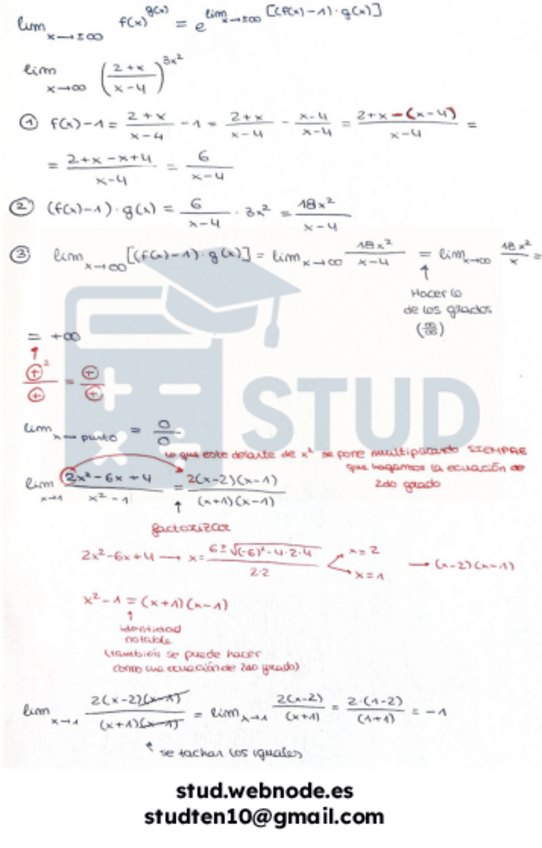 lim x→±∞ f(x)^g(x) = e^lim x→±∞ [(f(x)-1)·g(x)]
lim x→∞ (2+x / x-4)^3x²
① f(x)-1 = 2+x / x-4 - 1 = 2+x / x-4 - x-4 / x-4 = 2+x-(x-4) / x-4 =
= 2+x-x+4 / x-4 = 6 / x-4
② (f(x)-1)·g(x) = 6 / x-4 · 3x² = 18x² / x-4
③ lim x→∞ [(f(x)-1)·g(x)] = lim x→∞ 18x² / x-4 = lim x→∞ 18x² / x =
↑
Hacer lo
de los grados
(∞/∞)
= +∞
↑
⊕² / ⊕ = ⊕ / ⊕
STUD
lim x→punto = 0 / 0
lo que este delante de x² se pone multiplicando SIEMPRE
que hagamos la ecuación de
2do grado
lim x→1 2x²-6x+4 / x²-1 = 2(x-2)(x-1) / (x+1)(x-1)
↑
factorizar
2x²-6x+4 → x = 6±√(-6)²-4·2·4 / 2·2 x=2 x=1 → (x-2)(x-1)
x²-1 = (x+1)(x-1)
↑
identidad
notable
(también se puede hacer
como una ecuación de 2do grado)
lim x→1 2(x-2)(x-1) / (x+1)(x-1) = lim x→1 2(x-2) / (x+1) = 2·(1-2) / (1+1) = -1
↑ se tachan los iguales
stud.webnode.es
studten10@gmail.com